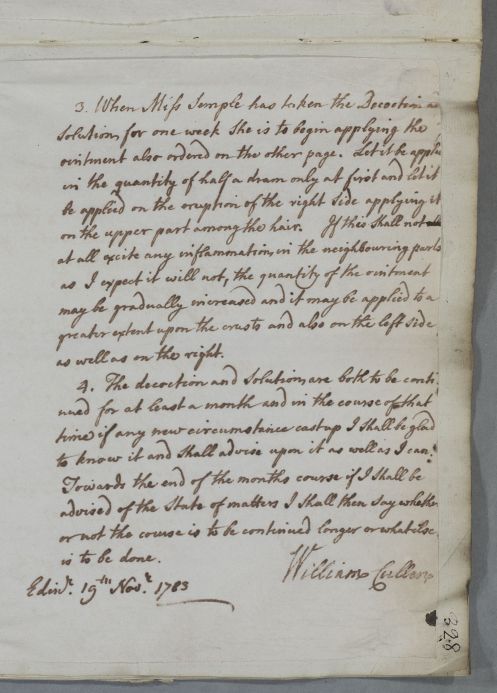 3. When Miss Semple has taken the Decoction &
Solution, for one week She is to begin applying the
ointment also ordered on the other page. Let it be applied
in the quantity of half a dram only at first and let it
be applied on the eruption of the right Side applying it
on the upper part among the hair. If this Shall not
at all excite any inflammation, in the neighbouring parts
as I expect it will not, the quantity of the ointment
may be gradually increased and it may be applied to a
greater extent upon the crusts and also on the left Side
as well as on the right.
4. The decoction and Solution, are both to be conti
nued for at least a month and in the course of that
time if any new circumstance cast up I Shall be glad
to know it and Shall advise upon it as well as I can.
Towards the end of the months course if I Shall be
advised of the State of matters I Shall then Say whether
or not the course is to be continued longer or what else
is to be done.
William Cullen
Edinr. 19th Novr. 1783
328